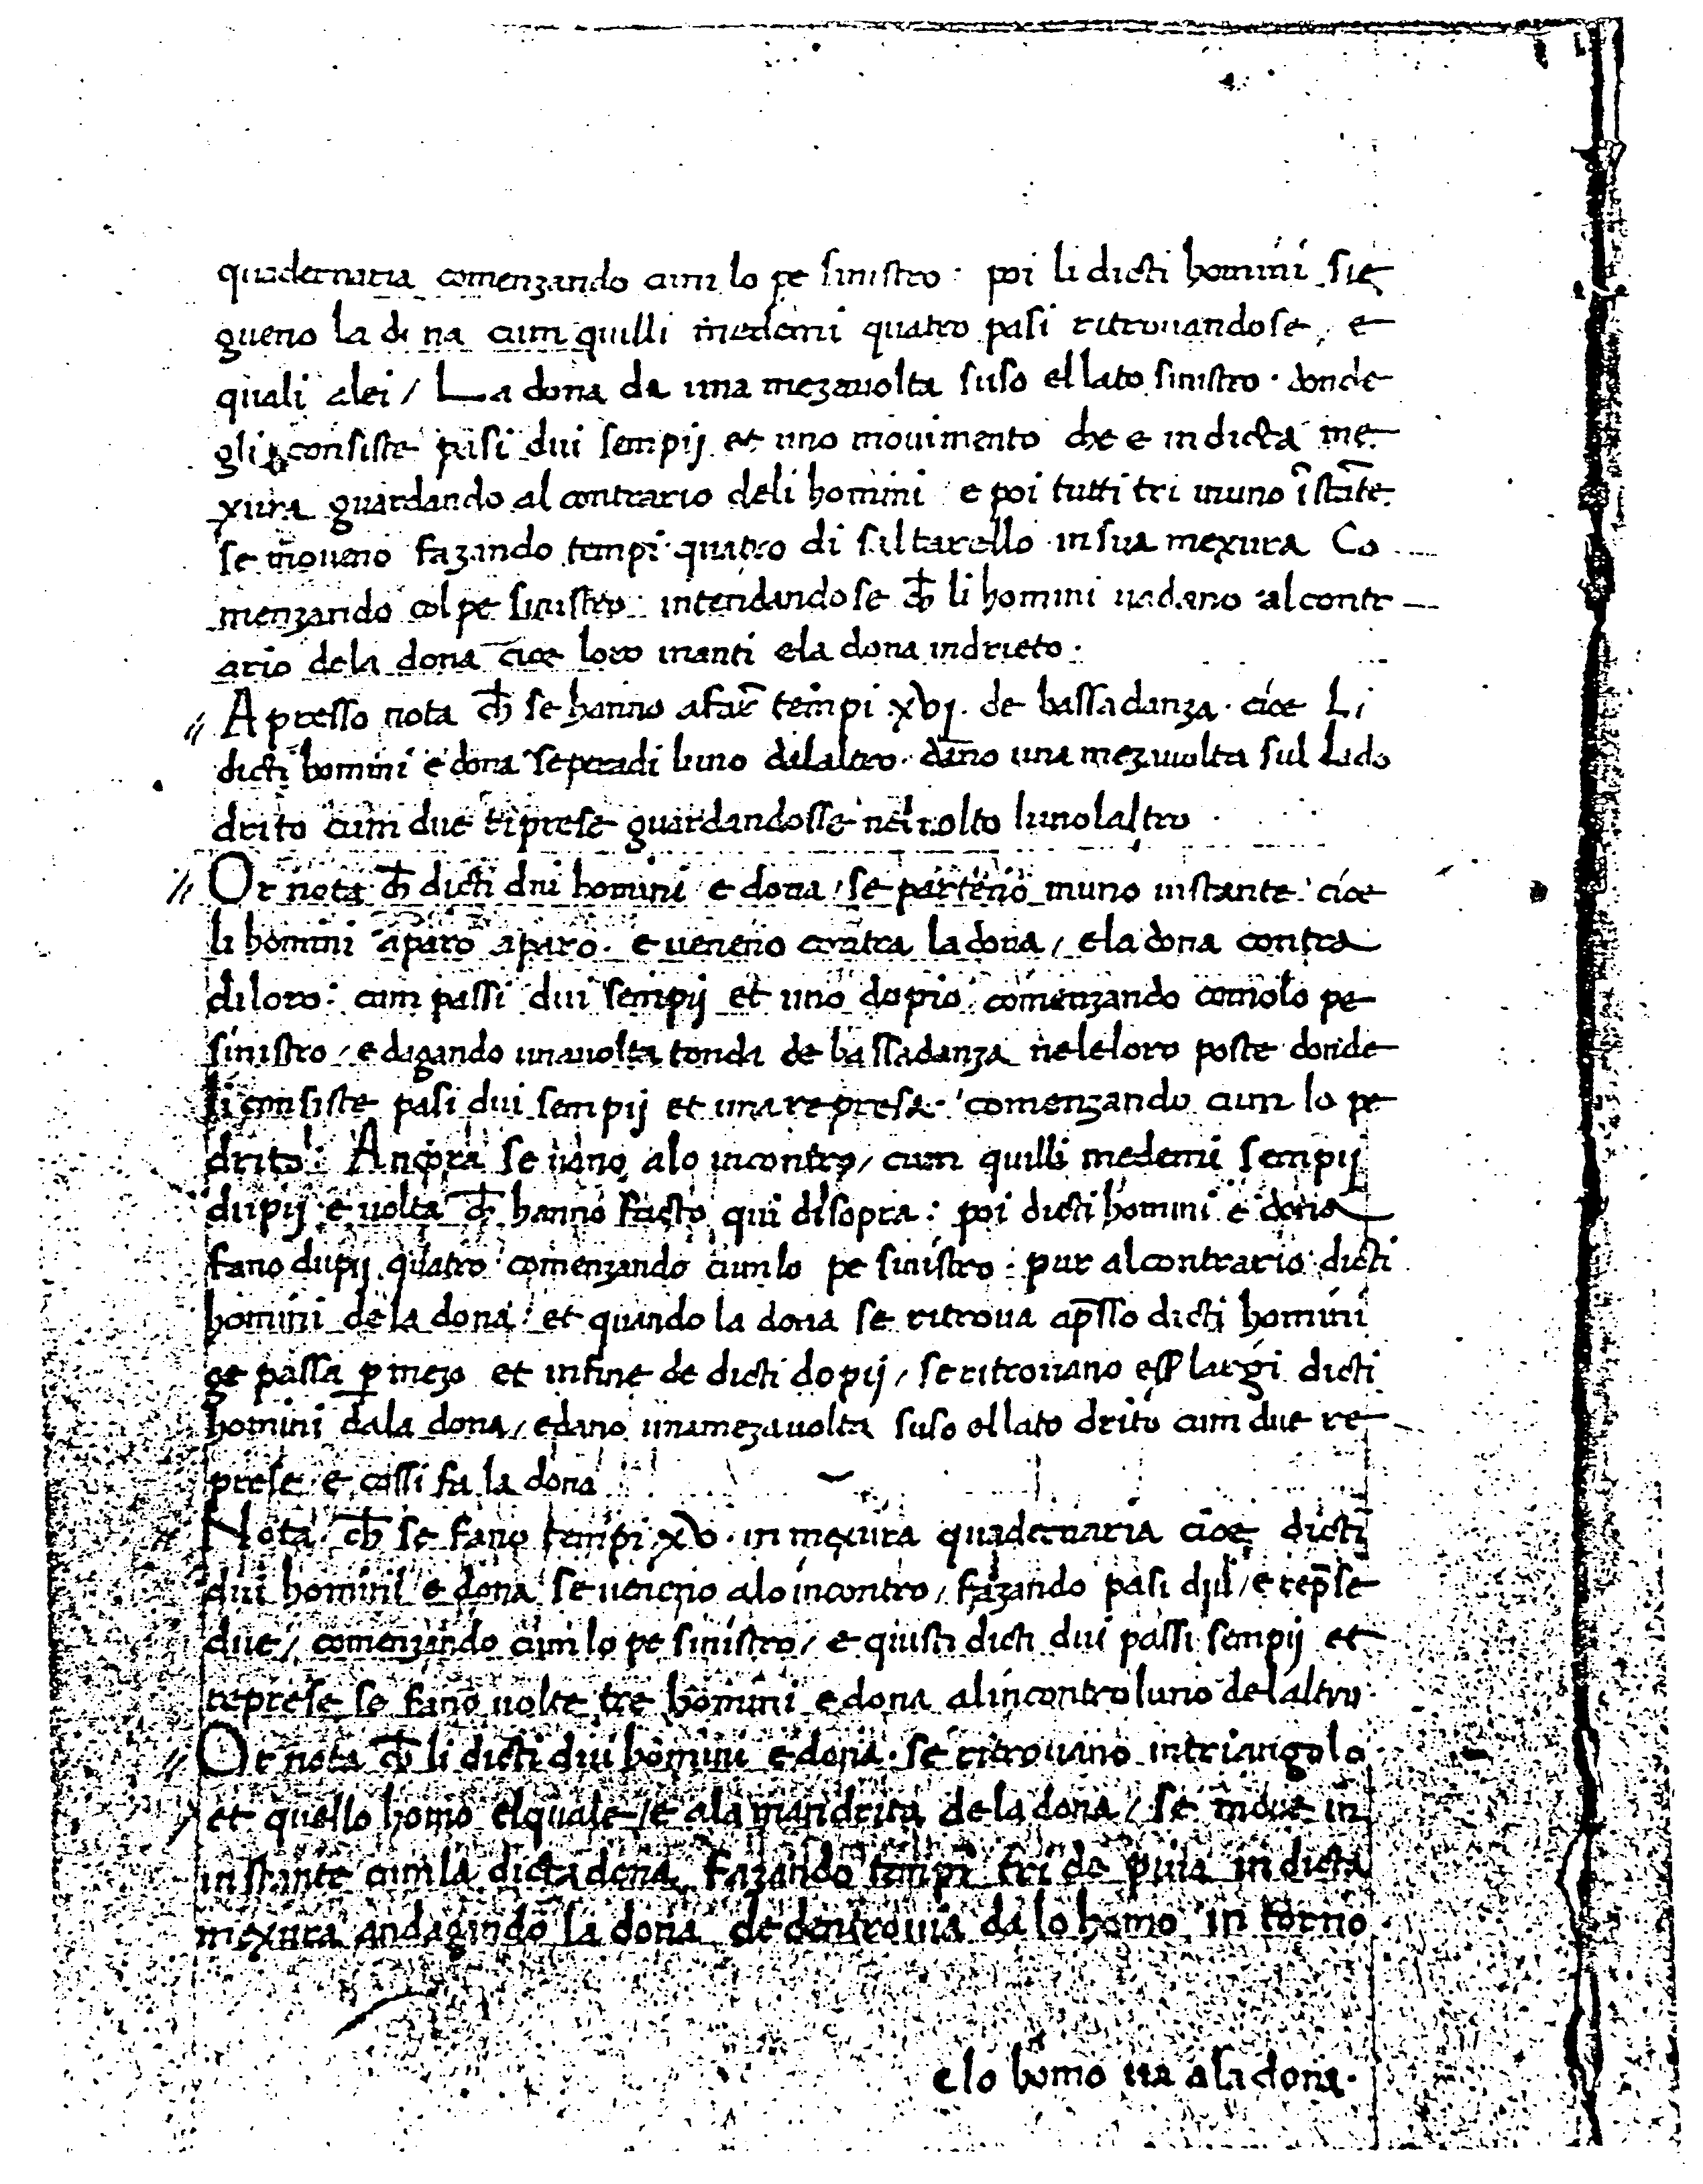 quadernaria comenzando cum lo pe sinistro · poi li dicti homini sie
gueno la dona cum quilli medemi quatro pasi ritrouandose / e
quali alei / La dona da una mezauolta suso el lato sinistro · donde
gli consiste pasi dui sempij et uno mouimento che e in dicta me
xura guardando al contrario deli homini e poi tutti tri inuno īstāte
se moueno fazando tempi quatro di saltarello in sua mexura Co
menzando col pe sinistro intendandose cħ li homini uadano al contr
ario dela dona cioe loro inanti e la dona indrieto ·
// Apresso nota cħ se hanno afar̄ tempi ·xvj· de bassadanza · cioe Li
dicti homini e dona seperadi luno dalaltro · dāno una mezauolta sul Lado
drito cum due riprese guardandosse nel uolto luno laltro ·
// Or nota cħ dicti dui homini e dona / se parteno inuno instante cioe
li homini aparo aparo · e ueneno contra la dona / e la dona contra
di loro : cum passi dui sempij et uno dopio comenzando comolo pe
sinistro / e dagando una uolta tonda de bassadanza nele loro poste donde
li consiste pasi dui sempij et una represa · comenzando cum lo pe
drito Ancora se uano alo incontro / cum quilli medemi sempij
dupij e uolta cħ hanno facto qui disopra : poi dicti homini e dona
fano dupij quatro comenzando cum lo pe sinistro : pur al contrario dicti
homini de la dona : et quando la dona se ritroua ap̄sso dicti homini
ge passa ꝑ mezo et infine de dicti dopij / se ritrouano largi dicti
homini dala dona / e dano una mezauolta suso el lato drito cum due re
prese e cossi fa la dona
Nota cħ se fano tempi xv · in mexura quadernaria cioe dicti
dui homini e dona se ueneno alo incontro / fazando pasi dui / e rep̄se
due / comenzando cum lo pe sinistro / e quisti dicti dui passi sempij et
represe se fano uolte tre homini e dona al incontro luno del altro ·
// Or nota cħ li dicti dui homini e dona · se ritrouano in triangolo
et quello homo el quale / e ala man drita de la dona / se moue in
instante cum la dicta dona fazando tempi tri de piua in dicta
mexura andagando la dona de dentrouia da lo homo in torno
e lo homo ua ala dona ·